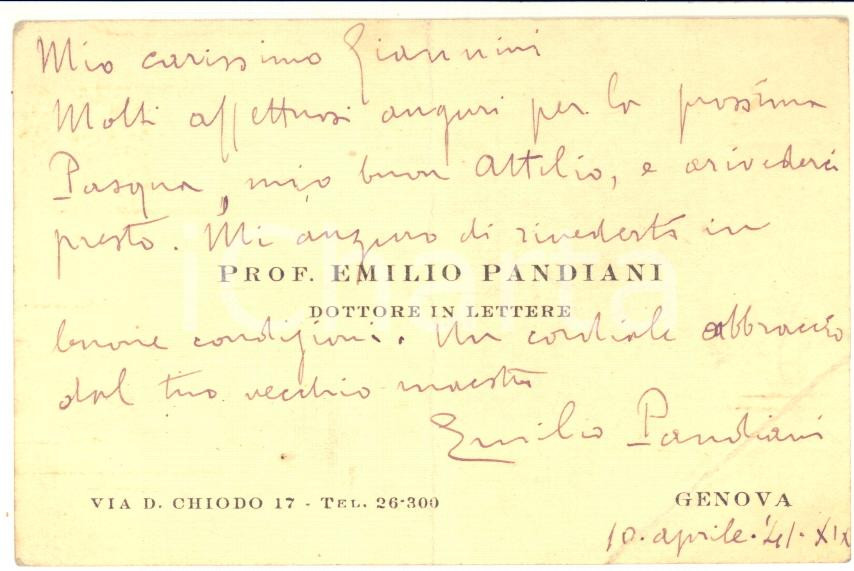 Mio carissimo Giannini
Molti affettuosi auguri per la prossima
Pasqua, mio buon Attilio, e arivederci
presto. Mi auguro di rivederti in
PROF. EMILIO PANDIANI
DOTTORE IN LETTERE
buone condizioni. Un cordiale abbraccio
dal tuo vecchio maestro
Emilio Pandiani
VIA D. CHIODO 17 - TEL. 26-300
GENOVA
10. aprile. '41. XIX
iCharta